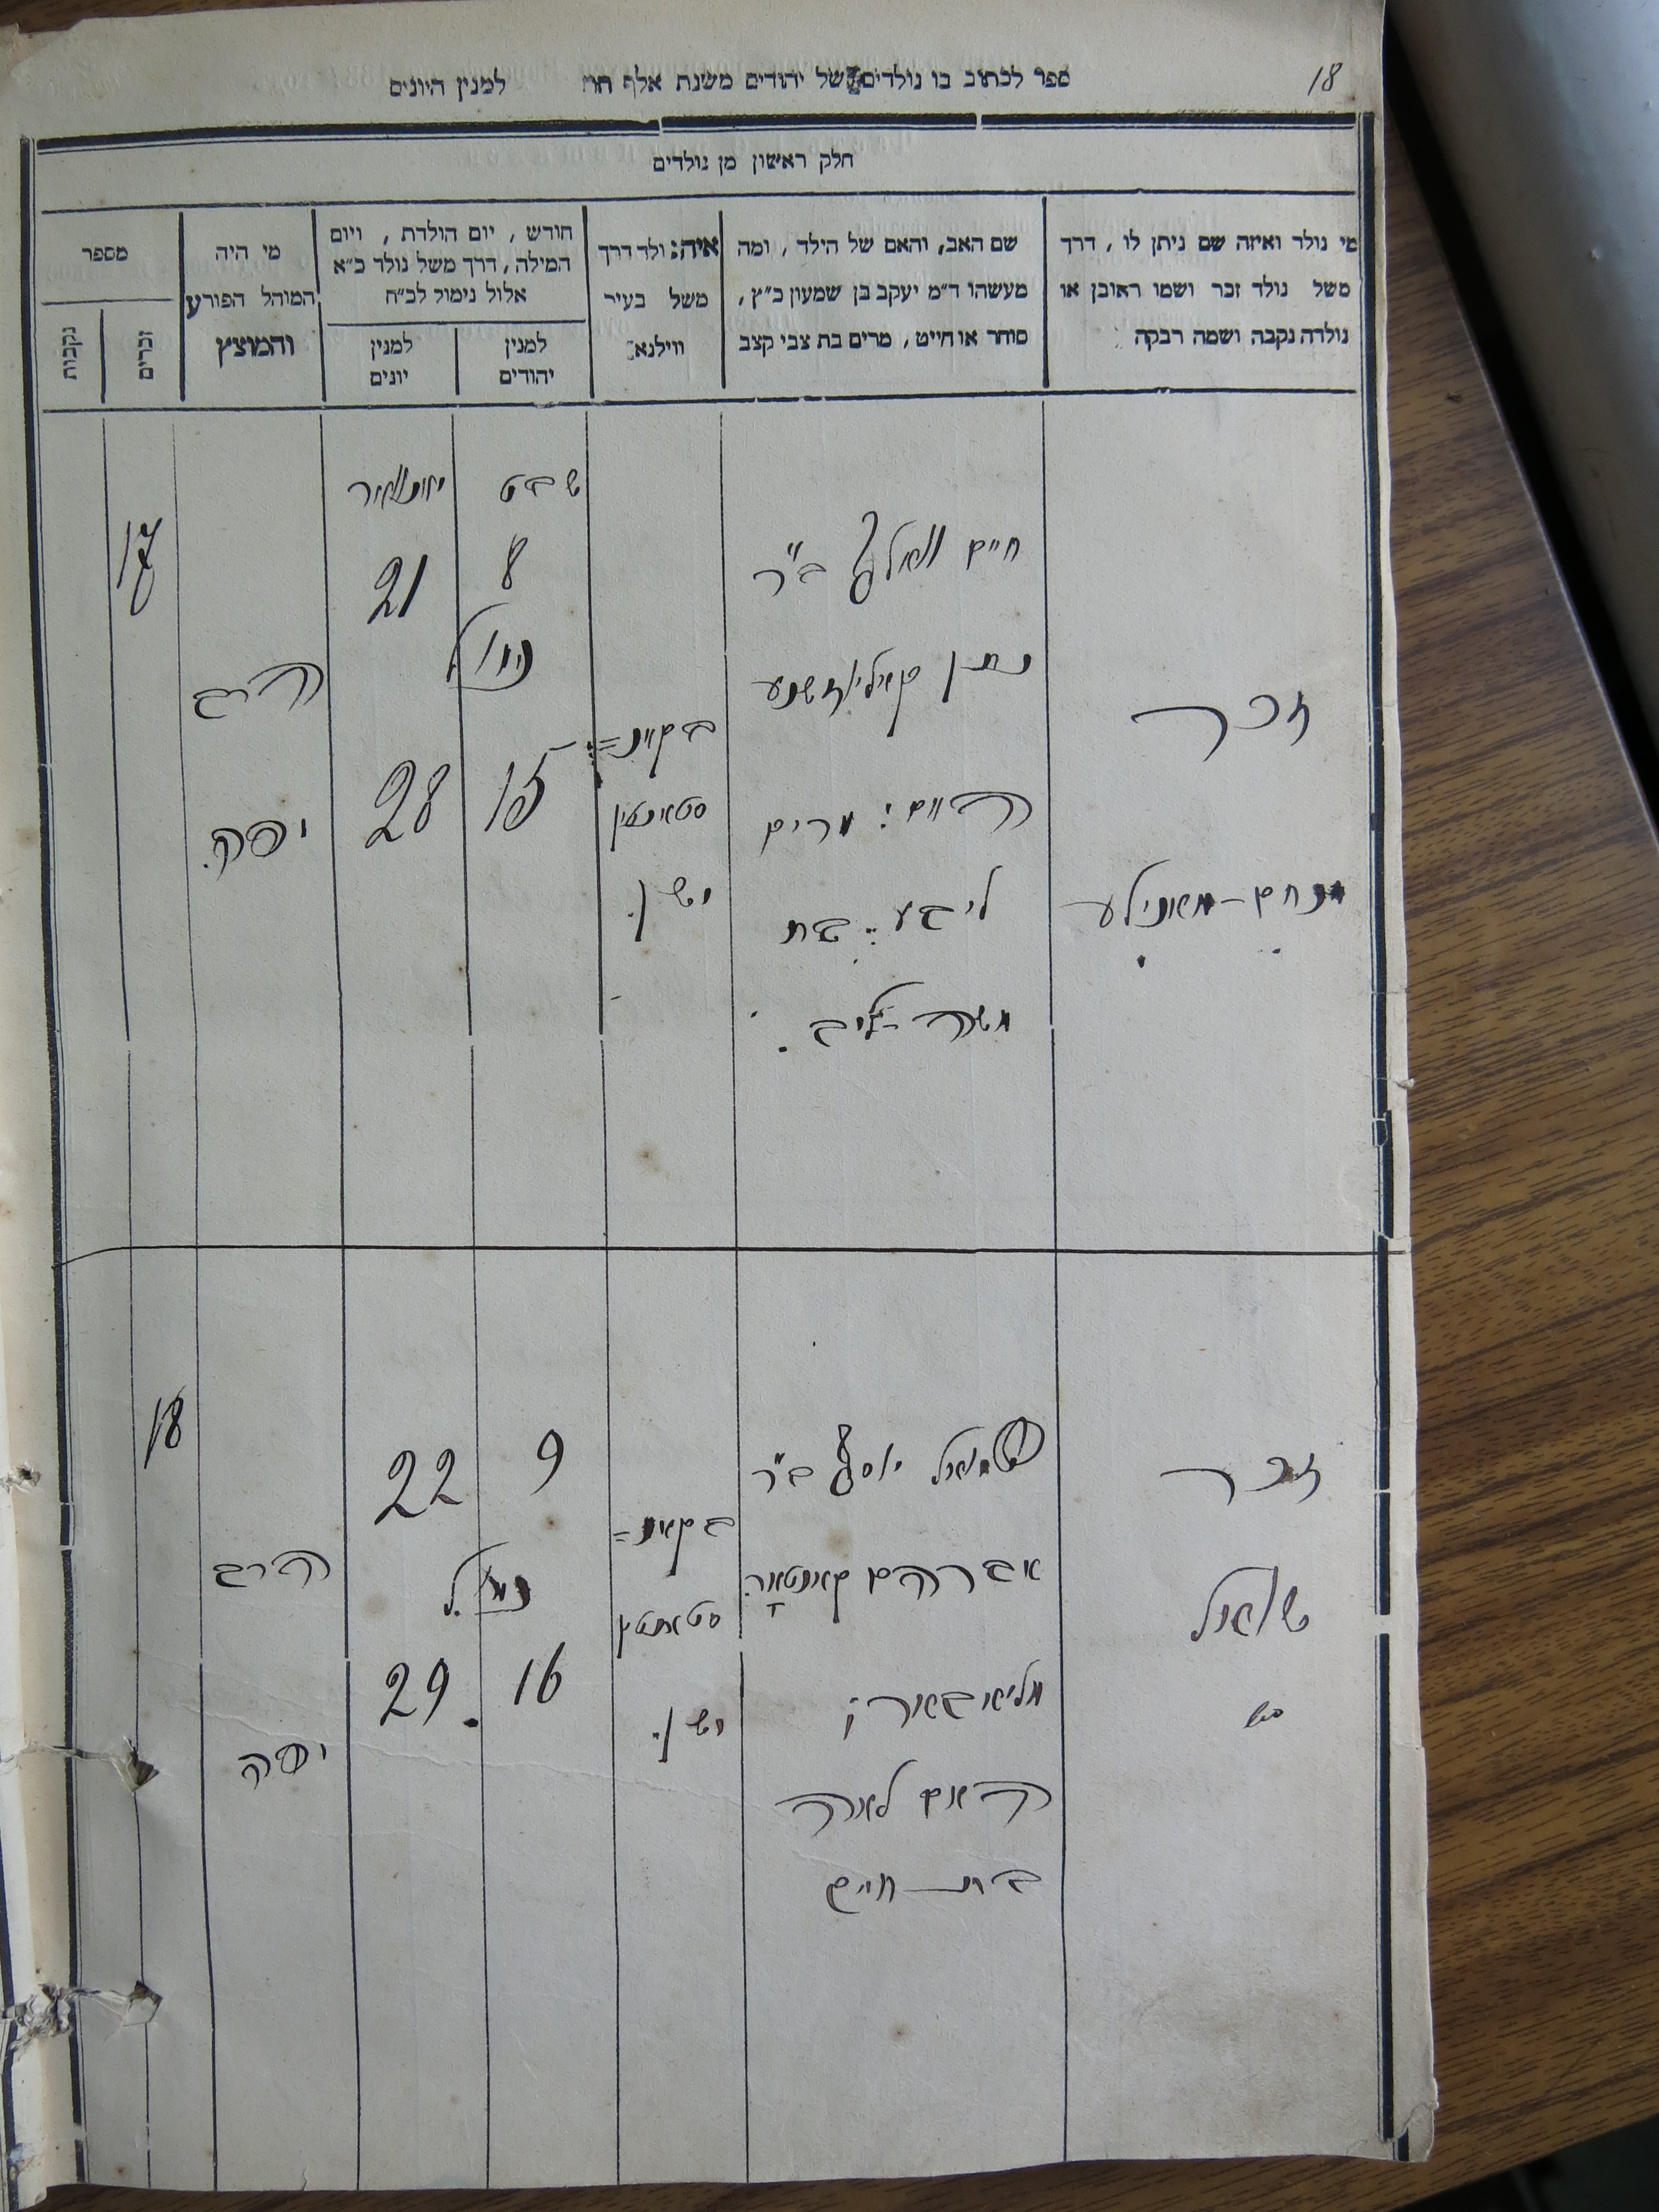 18
ספר לכתוב בו נולדים של יהודים משנת אלף תת למנין היונים
חלק ראשון מן נולדים
מי נולד ואיזה שם ניתן לו, דרך
משל נולד זכר ושמו ראובן או
נולדה נקבה ושמה רבקה
שם האב, והאם של הילד, ומה
מעשהו ד״מ יעקב בן שמעון כ״ץ,
סוחר או חייט, מרים בת צבי קצב
איה נולד דרך
משל בעיר
ווילנא
חודש, יום הולדת, ויום
המילה, דרך משל נולד כ״א
אלול נימול לכ״ח
למנין
יהודים
למנין
יונים
מי היה
המוהל הפורע
והמוצץ
מספר
זכרים
נקבות
זכר
מנחם - מאנילע
חיים וואלף ב״ר
נתן
האם: מרים
ליבע: בת
משה - ליב.
בקאנ=
סטאנטין
ישן.
שבט
8
נימול
15
יאנואר
21
28
הרב
יפה.
17
זכר
שאול
שמואל יוסף ב״ר
אברהם קאנטאר.
מליאבאר;
האם לאה
בת חיים
בקאנ=
סטאנטין
ישן.
9
נימול
16
22
29.
הרב
יפה
18